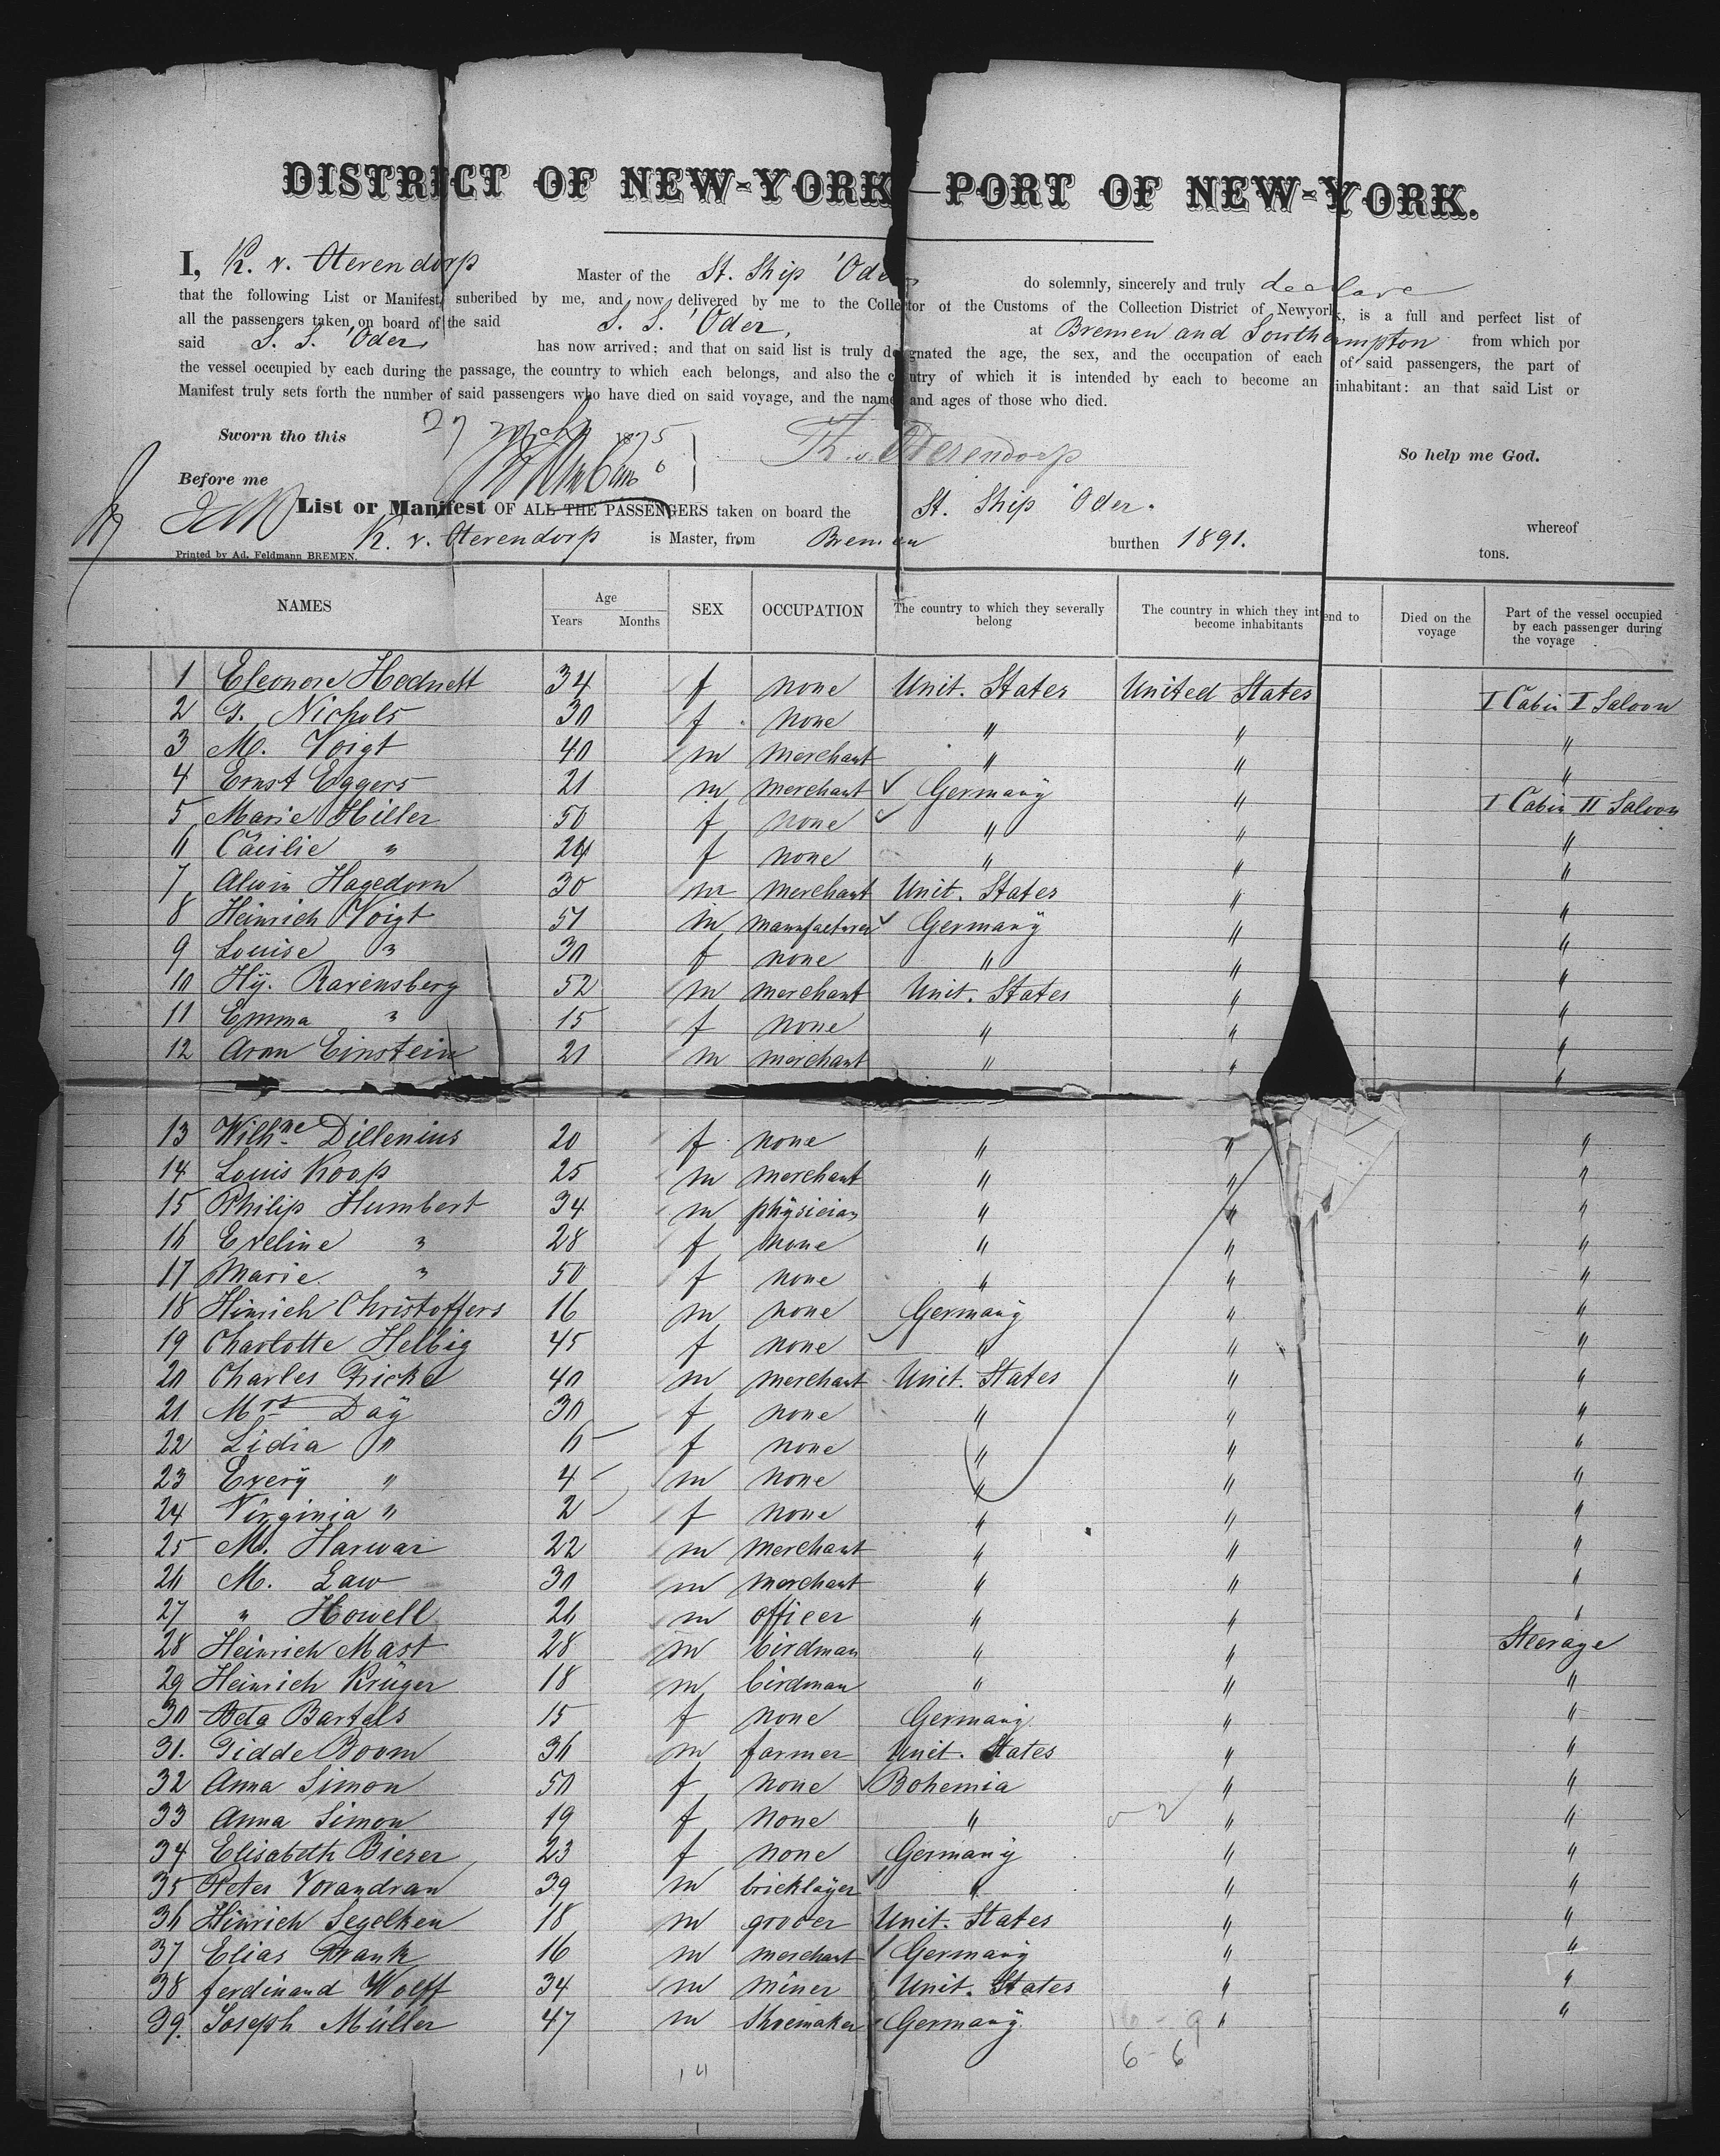 DISTRICT OF NEW-YORK—PORT OF NEW-YORK.
I, K. v. Oterendorp Master of the St. Ship 'Oder, do solemnly, sincerely and truly declare
that the following List or Manifest, subcribed by me, and now delivered by me to the Collector of the Customs of the Collection District of Newyork, is a full and perfect list of
all the passengers taken on board of the said S. S. 'Oder, at Bremen and Southampton from which por
said S. S. 'Oder, has now arrived; and that on said list is truly designated the age, the sex, and the occupation of each of said passengers, the part of
the vessel occupied by each during the passage, the country to which each belongs, and also the country of which it is intended by each to become an inhabitant: an that said List or
Manifest truly sets forth the number of said passengers who have died on said voyage, and the names and ages of those who died.
Sworn tho this 27 1875 K. v. Oterendorp So help me God.
Before me
List or Manifest OF ALL THE PASSENGERS taken on board the St. Ship 'Oder. whereof
K. v. Oterendorp is Master, from Bremen burthen 1891. tons.
Printed by Ad. Feldmann BREMEN.
NAMES Age Years Months SEX OCCUPATION The country to which they severally belong The country in which they intend to become inhabitants Died on the voyage Part of the vessel occupied by each passenger during the voyage
1 Eleonore Hodnett 34 f none Unit. States United States I Cabin I Saloon
2 G. Nichols 30 f none " " "
3 M. Voigt 40 m merchant " " "
4 Ernst Eggers 21 m merchant Germany " I Cabin II Saloon
5 Marie Hiller 50 f none " " "
6 Cäcilie " 24 f none " " "
7 Alwin Hagedorn 30 m merchant Unit. States " "
8 Heinrich Voigt 51 m manufacturer Germany " "
9 Louise " 30 f none " " "
10 Hÿ. Ravensberg 52 m merchant Unit. States " "
11 Emma " 15 f none " " "
12 Aron Einstein 21 m merchant " " "
13 Wilhne Dillenius 20 f none " " "
14 Louis Koop 25 m merchant " " "
15 Philip Humbert 34 m phÿsician " " "
16 Eveline " 28 f none " " "
17 Marie " 50 f none " " "
18 Hinrich Christoffers 16 m none Germany " "
19 Charlotte Helbig 45 f none " " "
20 Charles Fricke 40 m merchant Unit. States " "
21 Mrs Daÿ 30 f none " " "
22 Lidia " 6 f none " " "
23 Everÿ " 4 m none " " "
24 Virginia " 2 f none " " "
25 M. Harwar 22 m merchant " " "
26 M. Law 30 m merchant " " "
27 " Howell 26 m officer " " "
28 Heinrich Mast 28 m birdman " " Steerage
29 Heinrich Krüger 18 m birdman " " "
30 Beta Bartels 15 f none Germany " "
31. Gidde Boom 36 m farmer Unit. States " "
32 Anna Simon 50 f none Bohemia " "
33 Anna Simon 19 f none " " "
34 Elisabeth Bieser 23 f none Germany " "
35 Peter Vorandran 39 m bricklaÿer " " "
36 Hinrich Segelken 18 m grocer Unit. States " "
37 Elias Frank 16 m merchant Germany " "
38 ferdinand Wolff 34 m miner Unit. States " "
39. Joseph Müller 47 m Shoemaker Germany " "
6 - 6